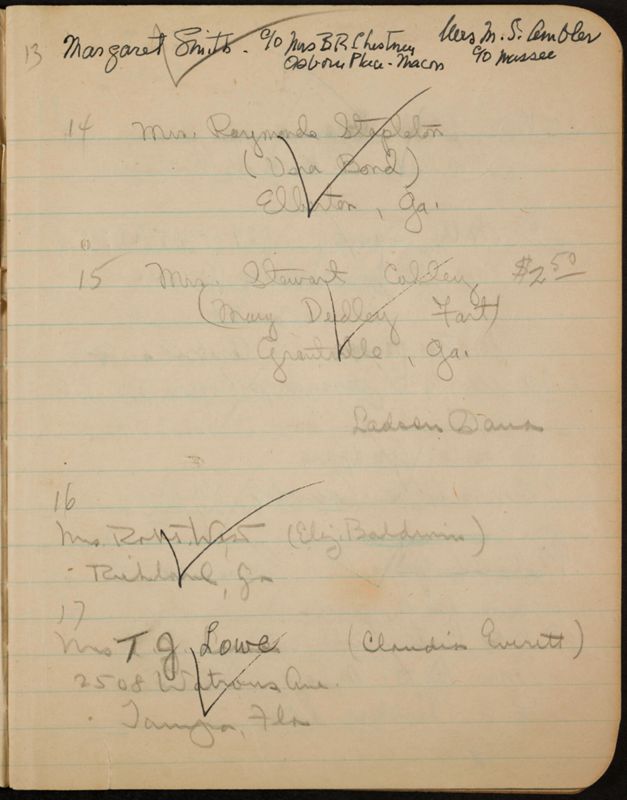 13 Margaret Smith. c/o Mrs B R Chestney Mrs M. S. Ambler
Osborn Place - Macon c/o Massee
14 Mrs. Raymonde Stapleton
(Vera Bond)
Elberton, Ga.
15 Mrs. Stewart Colley $2.50
(Mary Dudley Fort)
Grantville, Ga.
Ladson Dana
16
Mrs. Robt. West (Eliz. Baldwin)
Richland, Ga
17
Mrs T J Lowe (Claudia Everett)
2508 Watrous Ave.
Tampa, Fla